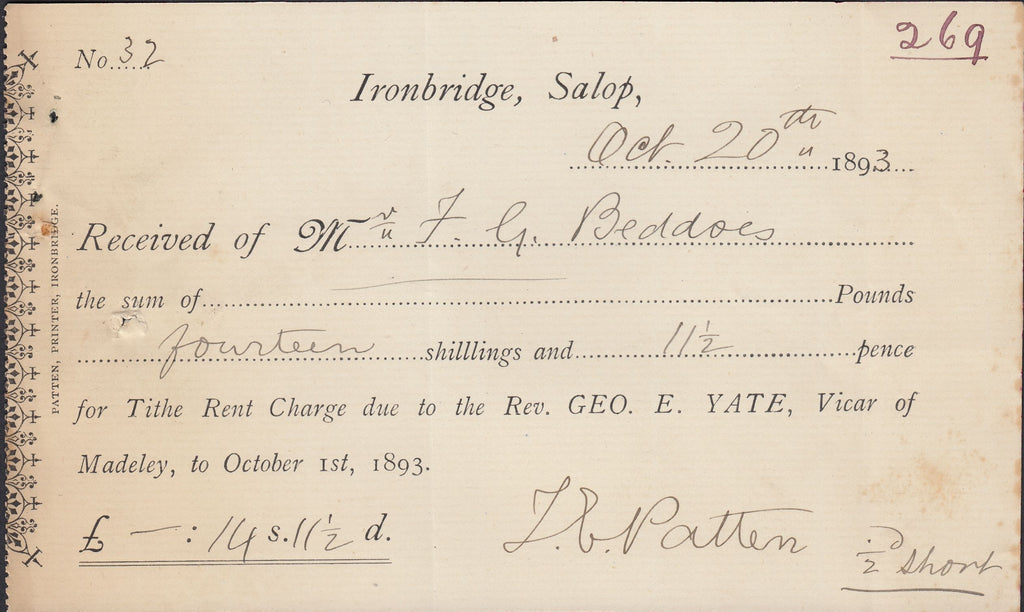 269
No. 32
Ironbridge, Salop,
Oct. 20th 1893
Received of Mr F. G. Beddoes
the sum of — Pounds
fourteen shilllings and 11½ pence
for Tithe Rent Charge due to the Rev. GEO. E. YATE, Vicar of
Madeley, to October 1st, 1893.
£ — : 14 s. 11½ d.
T. E. Patten
½d short
PATTEN, PRINTER, IRONBRIDGE.